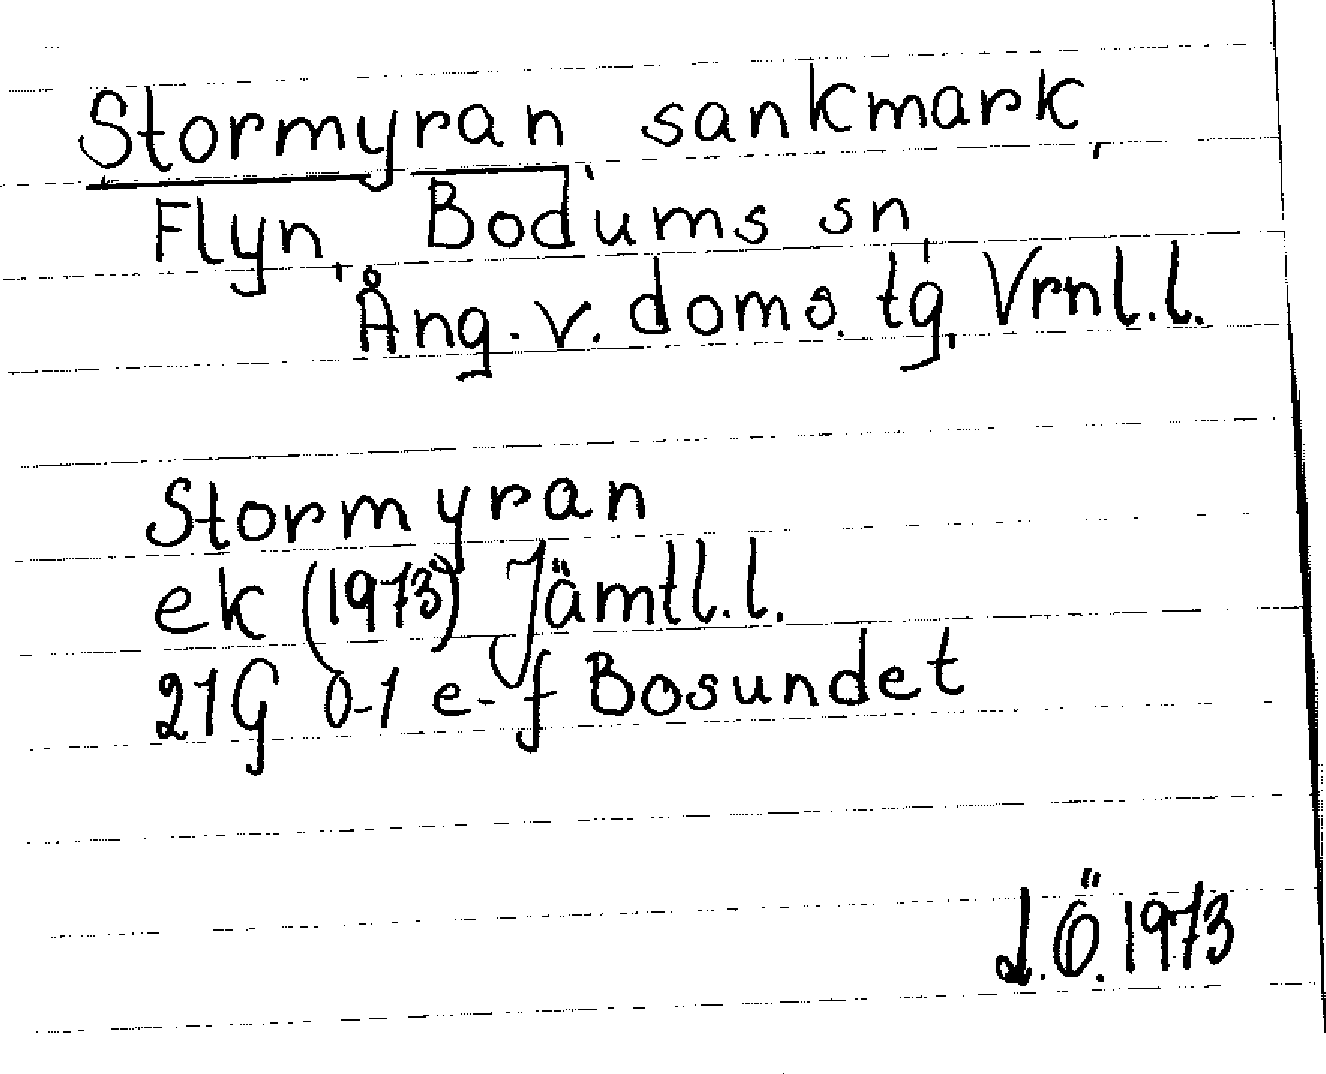 Stormyran, sankmark,
Flyn, Bodums sn,
Ång. v. doms. tg, Vrnl.l.
Stormyran
ek (1973) Jämtl.l.
21G 0-1 e-f Bosundet
L.Ö.1973